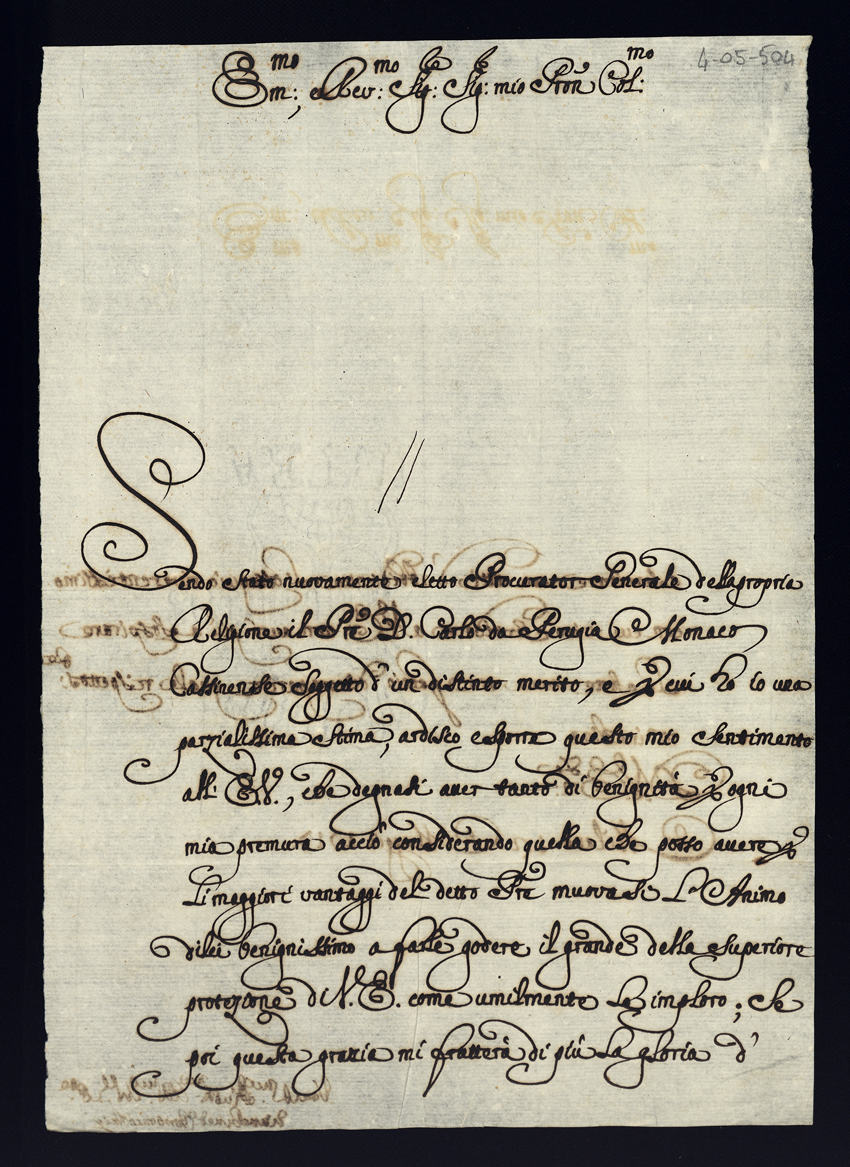 4-05-504
Em:mo, e Rev:mo Sig: Sig: mio Pron Col:mo
Sendo stato nuovamente eletto Procurator Generale della propria
Religione il Pre D. Carlo da Perugia Monaco
Cassinense soggetto d'un distinto merito, e p cui ho io una
parzialissima stima, ardisco esporre questo mio sentimento
all: E.V., che degnasi aver tanto di benignità p ogni
mia premura acciò considerando quella che posso avere p
li maggiori vantaggi del detto Pre muovasi L'Animo
di lei benignissimo a farle godere il grande della superiore
protezione di V.E. come umilmente Le imploro; se
poi questa grazia mi frutterà di più la gloria d'